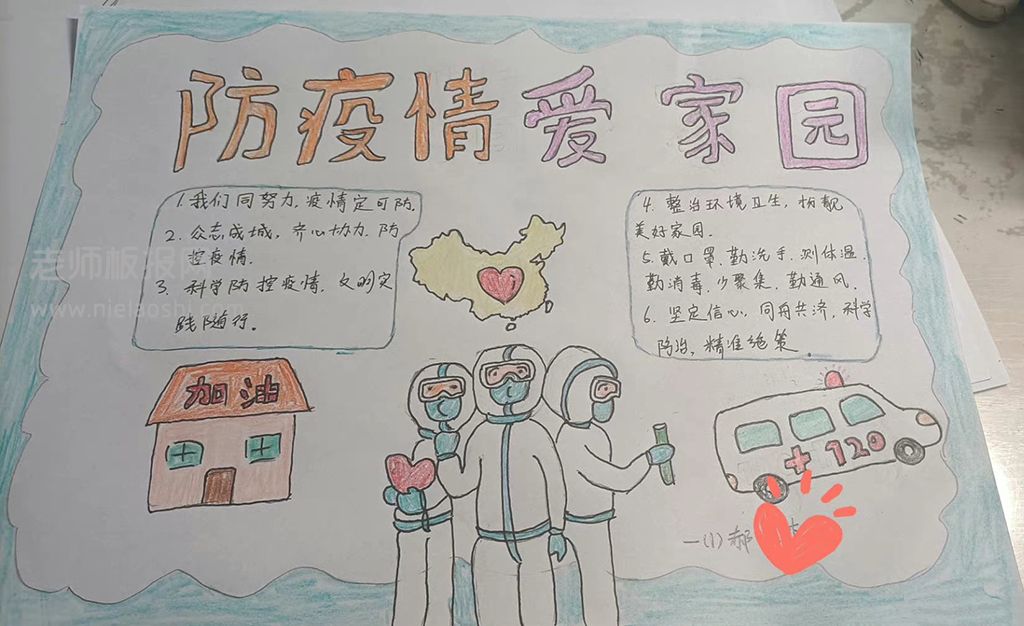 防疫情爱家园
1.我们同努力.疫情定可防.
2.众志成城,齐心协力.防
控疫情.
3.科学防控疫情,文明实
践随行。
4.整治环境卫生,扮靓
美好家园.
5.戴口罩.勤洗手.测体温.
勤消毒.少聚集.勤通风.
6.坚定信心.同舟共济.科学
防治,精准施策.
老师板报网
www.nielaoshi.com
加油
120
一(1)郝